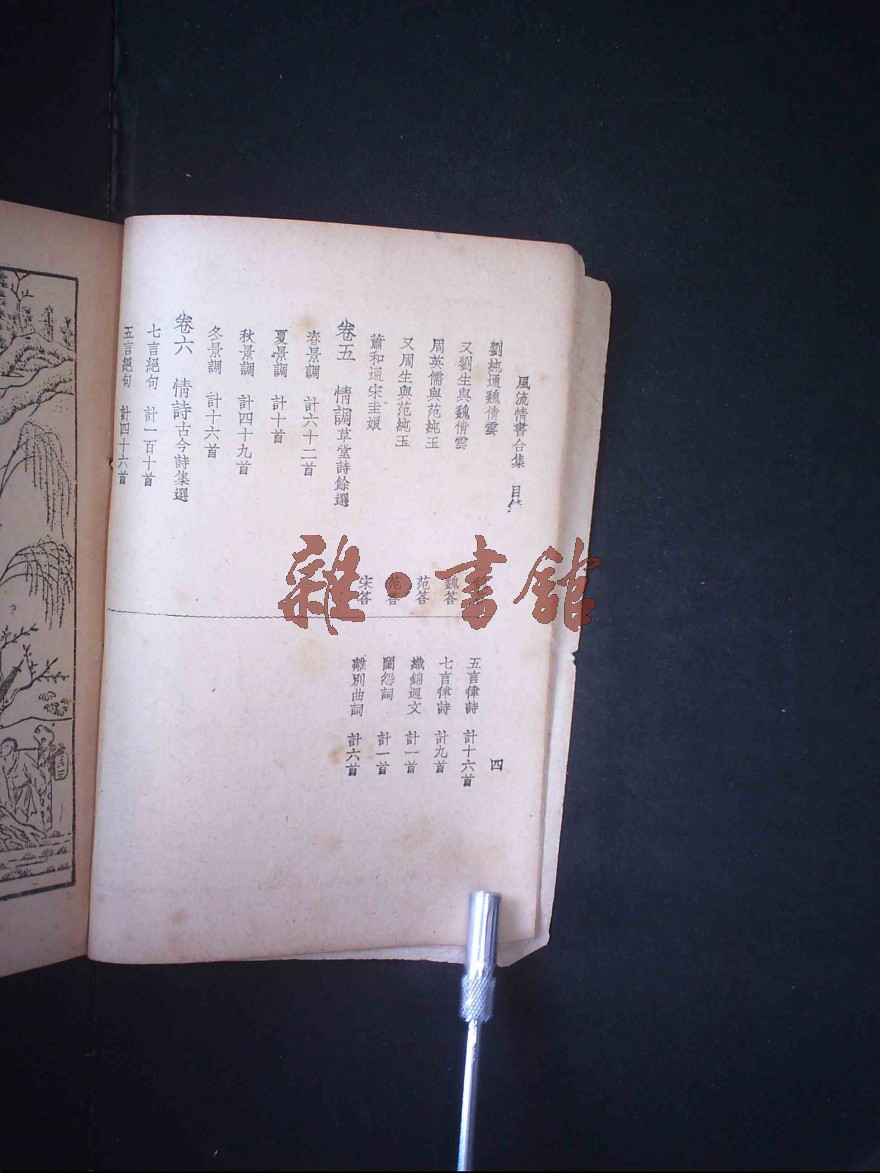 風流情書合集 目錄
四
劉純通魏倩雲
又劉生與魏倩雲 魏答
周英儒與范純玉 范答
又周生與范純玉 范答
蕭和通宋圭娘 宋答
卷五 情調草堂詩餘選
春景調 計六十二首
夏景調 計十首
秋景調 計四十九首
冬景調 計十六首
卷六 情詩古今詩集選
七言絕句 計一百十首
五言絕句 計四十六首
五言律詩 計十六首
七言律詩 計九首
織錦迴文 計一首
閨怨詞 計一首
離別曲詞 計六首
雜·書館